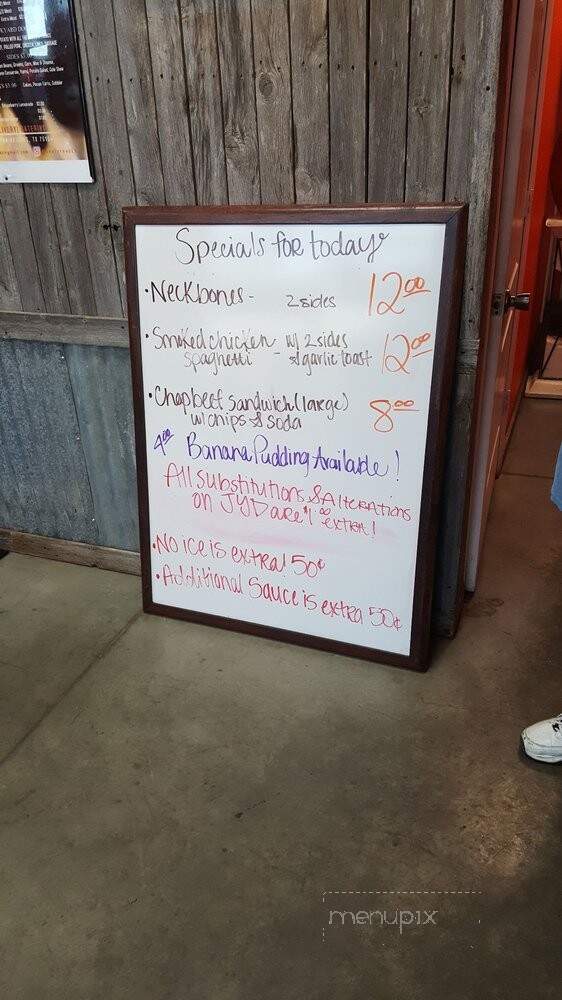 Specials for today
•Neckbones - 2 sides 12.00
•Smoked chicken w/ 2 sides 12.00
spaghetti - & garlic toast
•Chop beef sandwich (large) 8.00
w/ chips & soda
4.00 Banana Pudding Available!
All substitutions & Alterations
on JYD are $1.00 extra!
•No ice is extra! 50¢
•Additional Sauce is extra 50¢
menupix